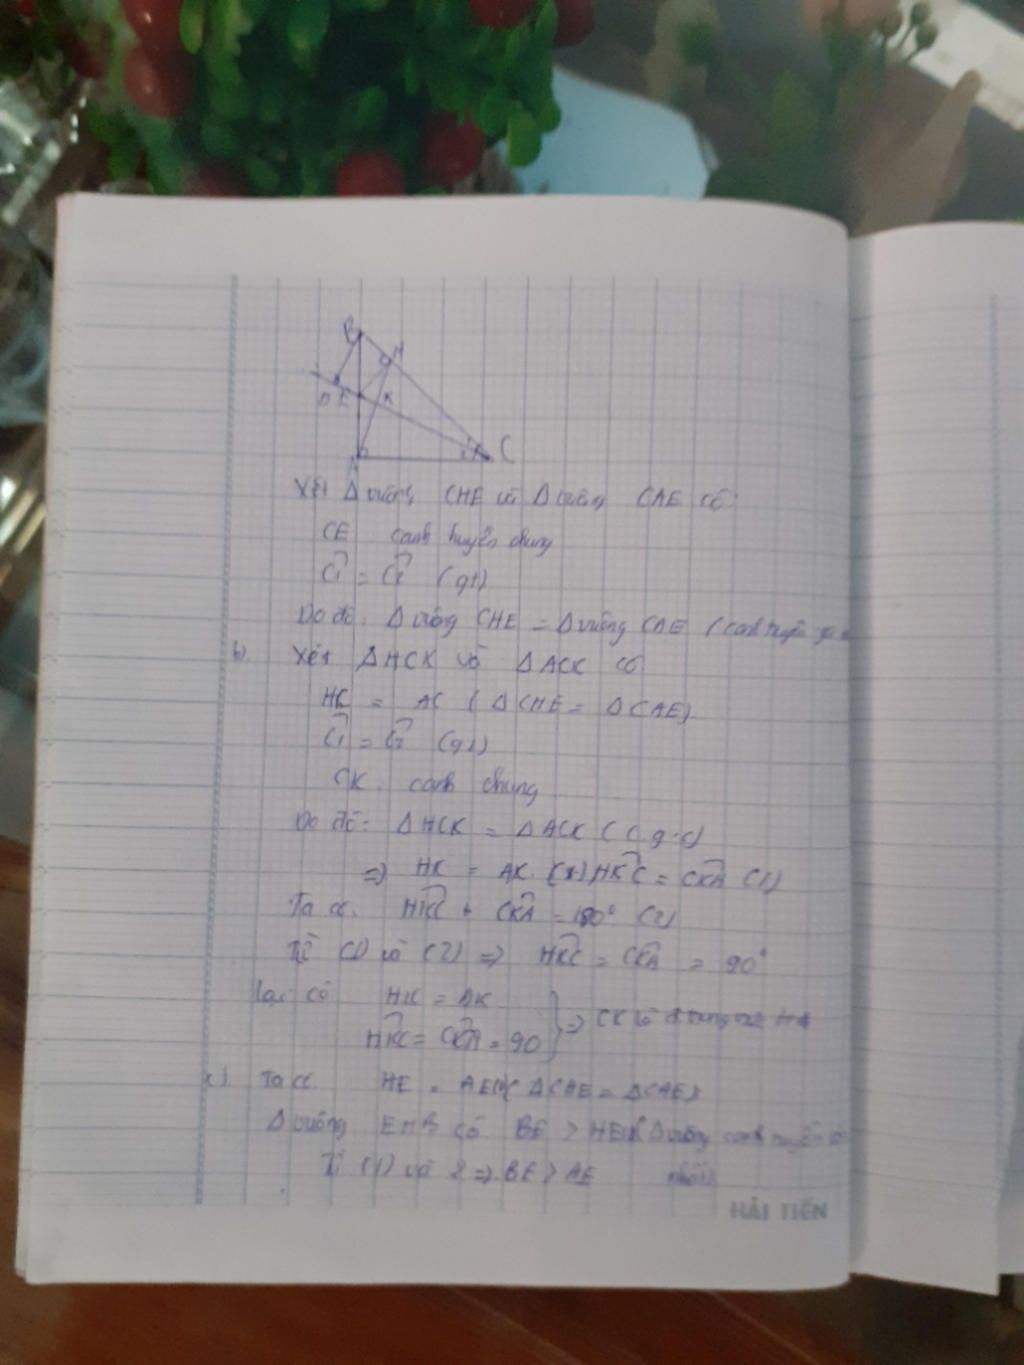 B
H
D E K
A
C
Xét Δ vuông CHE và Δ vuông CAE có
CE cạnh huyền chung
C1 = C2 (gt)
Do đó: Δ vuông CHE = Δ vuông CAE (cạnh huyền
b) Xét ΔHCK và ΔACK có
HC = AC (ΔCHE = ΔCAE)
C1 = C2 (gt)
CK cạnh chung
Do đó: ΔHCK = ΔACK (c.g.c)
=> HK = AK (*) HKC = CKA (1)
Ta có HKC + CKA = 180° (2)
Từ (1) và (2) => HKC = CKA = 90°
Lại có HK = AK
HKC = CKA = 90
} => CK là
c) Ta có HE = AE (1) (ΔCHE = ΔCAE)
Δ vuông EHB có BE > HE (Δ vuông cạnh huyền
Từ (1) và 2 => BE > AE
HẢI TIẾN